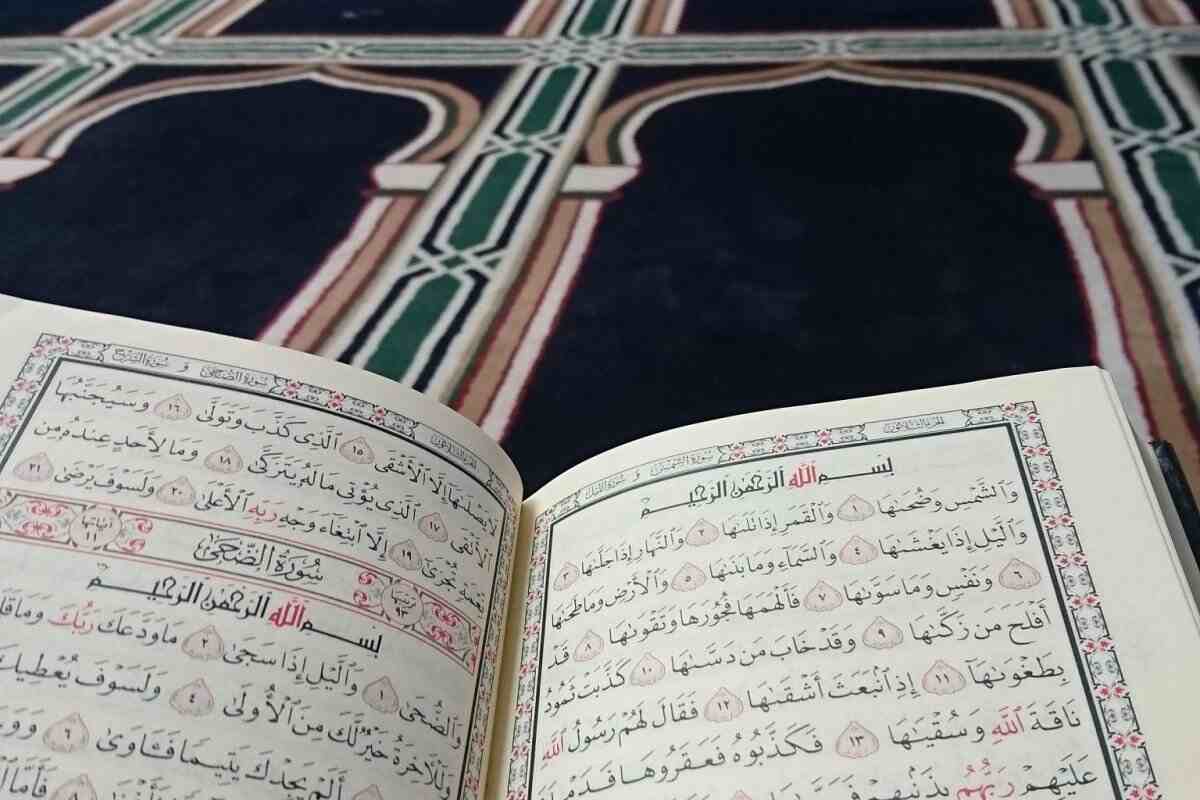 الجزء الثلاثون سورة الشمس سورة الليل
بِسْمِ ٱللَّهِ ٱلرَّحْمَٰنِ ٱلرَّحِيمِ
وَٱلشَّمْسِ وَضُحَىٰهَا ١ وَٱلْقَمَرِ إِذَا تَلَىٰهَا ٢ وَٱلنَّهَارِ إِذَا جَلَّىٰهَا ٣
وَٱلَّيْلِ إِذَا يَغْشَىٰهَا ٤ وَٱلسَّمَآءِ وَمَا بَنَىٰهَا ٥ وَٱلْأَرْضِ وَمَا طَحَىٰهَا
٦ وَنَفْسٍ وَمَا سَوَّىٰهَا ٧ فَأَلْهَمَهَا فُجُورَهَا وَتَقْوَىٰهَا ٨ قَدْ
أَفْلَحَ مَن زَكَّىٰهَا ٩ وَقَدْ خَابَ مَن دَسَّىٰهَا ١٠ كَذَّبَتْ ثَمُودُ
بِطَغْوَىٰهَآ ١١ إِذِ ٱنۢبَعَثَ أَشْقَىٰهَا ١٢ فَقَالَ لَهُمْ رَسُولُ ٱللَّهِ
نَاقَةَ ٱللَّهِ وَسُقْيَٰهَا ١٣ فَكَذَّبُوهُ فَعَقَرُوهَا فَدَمْدَمَ
عَلَيْهِمْ رَبُّهُم بِذَنۢبِهِمْ
الجزء الثلاثون سورة الضحى و سورة الشرح
لَا يَصْلَىٰهَآ إِلَّا ٱلْأَشْقَى ١٥ ٱلَّذِى كَذَّبَ وَتَوَلَّىٰ ١٦ وَسَيُجَنَّبُهَا
ٱلْأَتْقَى ١٧ ٱلَّذِى يُؤْتِى مَالَهُۥ يَتَزَكَّىٰ ١٨ وَمَا لِأَحَدٍ عِندَهُۥ مِن
نِّعْمَةٍ تُجْزَىٰٓ ١٩ إِلَّا ٱبْتِغَآءَ وَجْهِ رَبِّهِ ٱلْأَعْلَىٰ ٢٠ وَلَسَوْفَ يَرْضَىٰ ٢١
ترتيبها ٩٣ سُورَةُ الضُّحَىٰ آياتها ١١
بِسْمِ ٱللَّهِ ٱلرَّحْمَٰنِ ٱلرَّحِيمِ
وَٱلضُّحَىٰ ١ وَٱلَّيْلِ إِذَا سَجَىٰ ٢ مَا وَدَّعَكَ رَبُّكَ وَمَا
وَلَلْءَاخِرَةُ خَيْرٌ لَّكَ مِنَ ٱلْأُولَىٰ ٤ وَلَسَوْفَ يُعْطِيكَ
أَلَمْ يَجِدْكَ يَتِيمًا فَـَٔاوَىٰ ٦